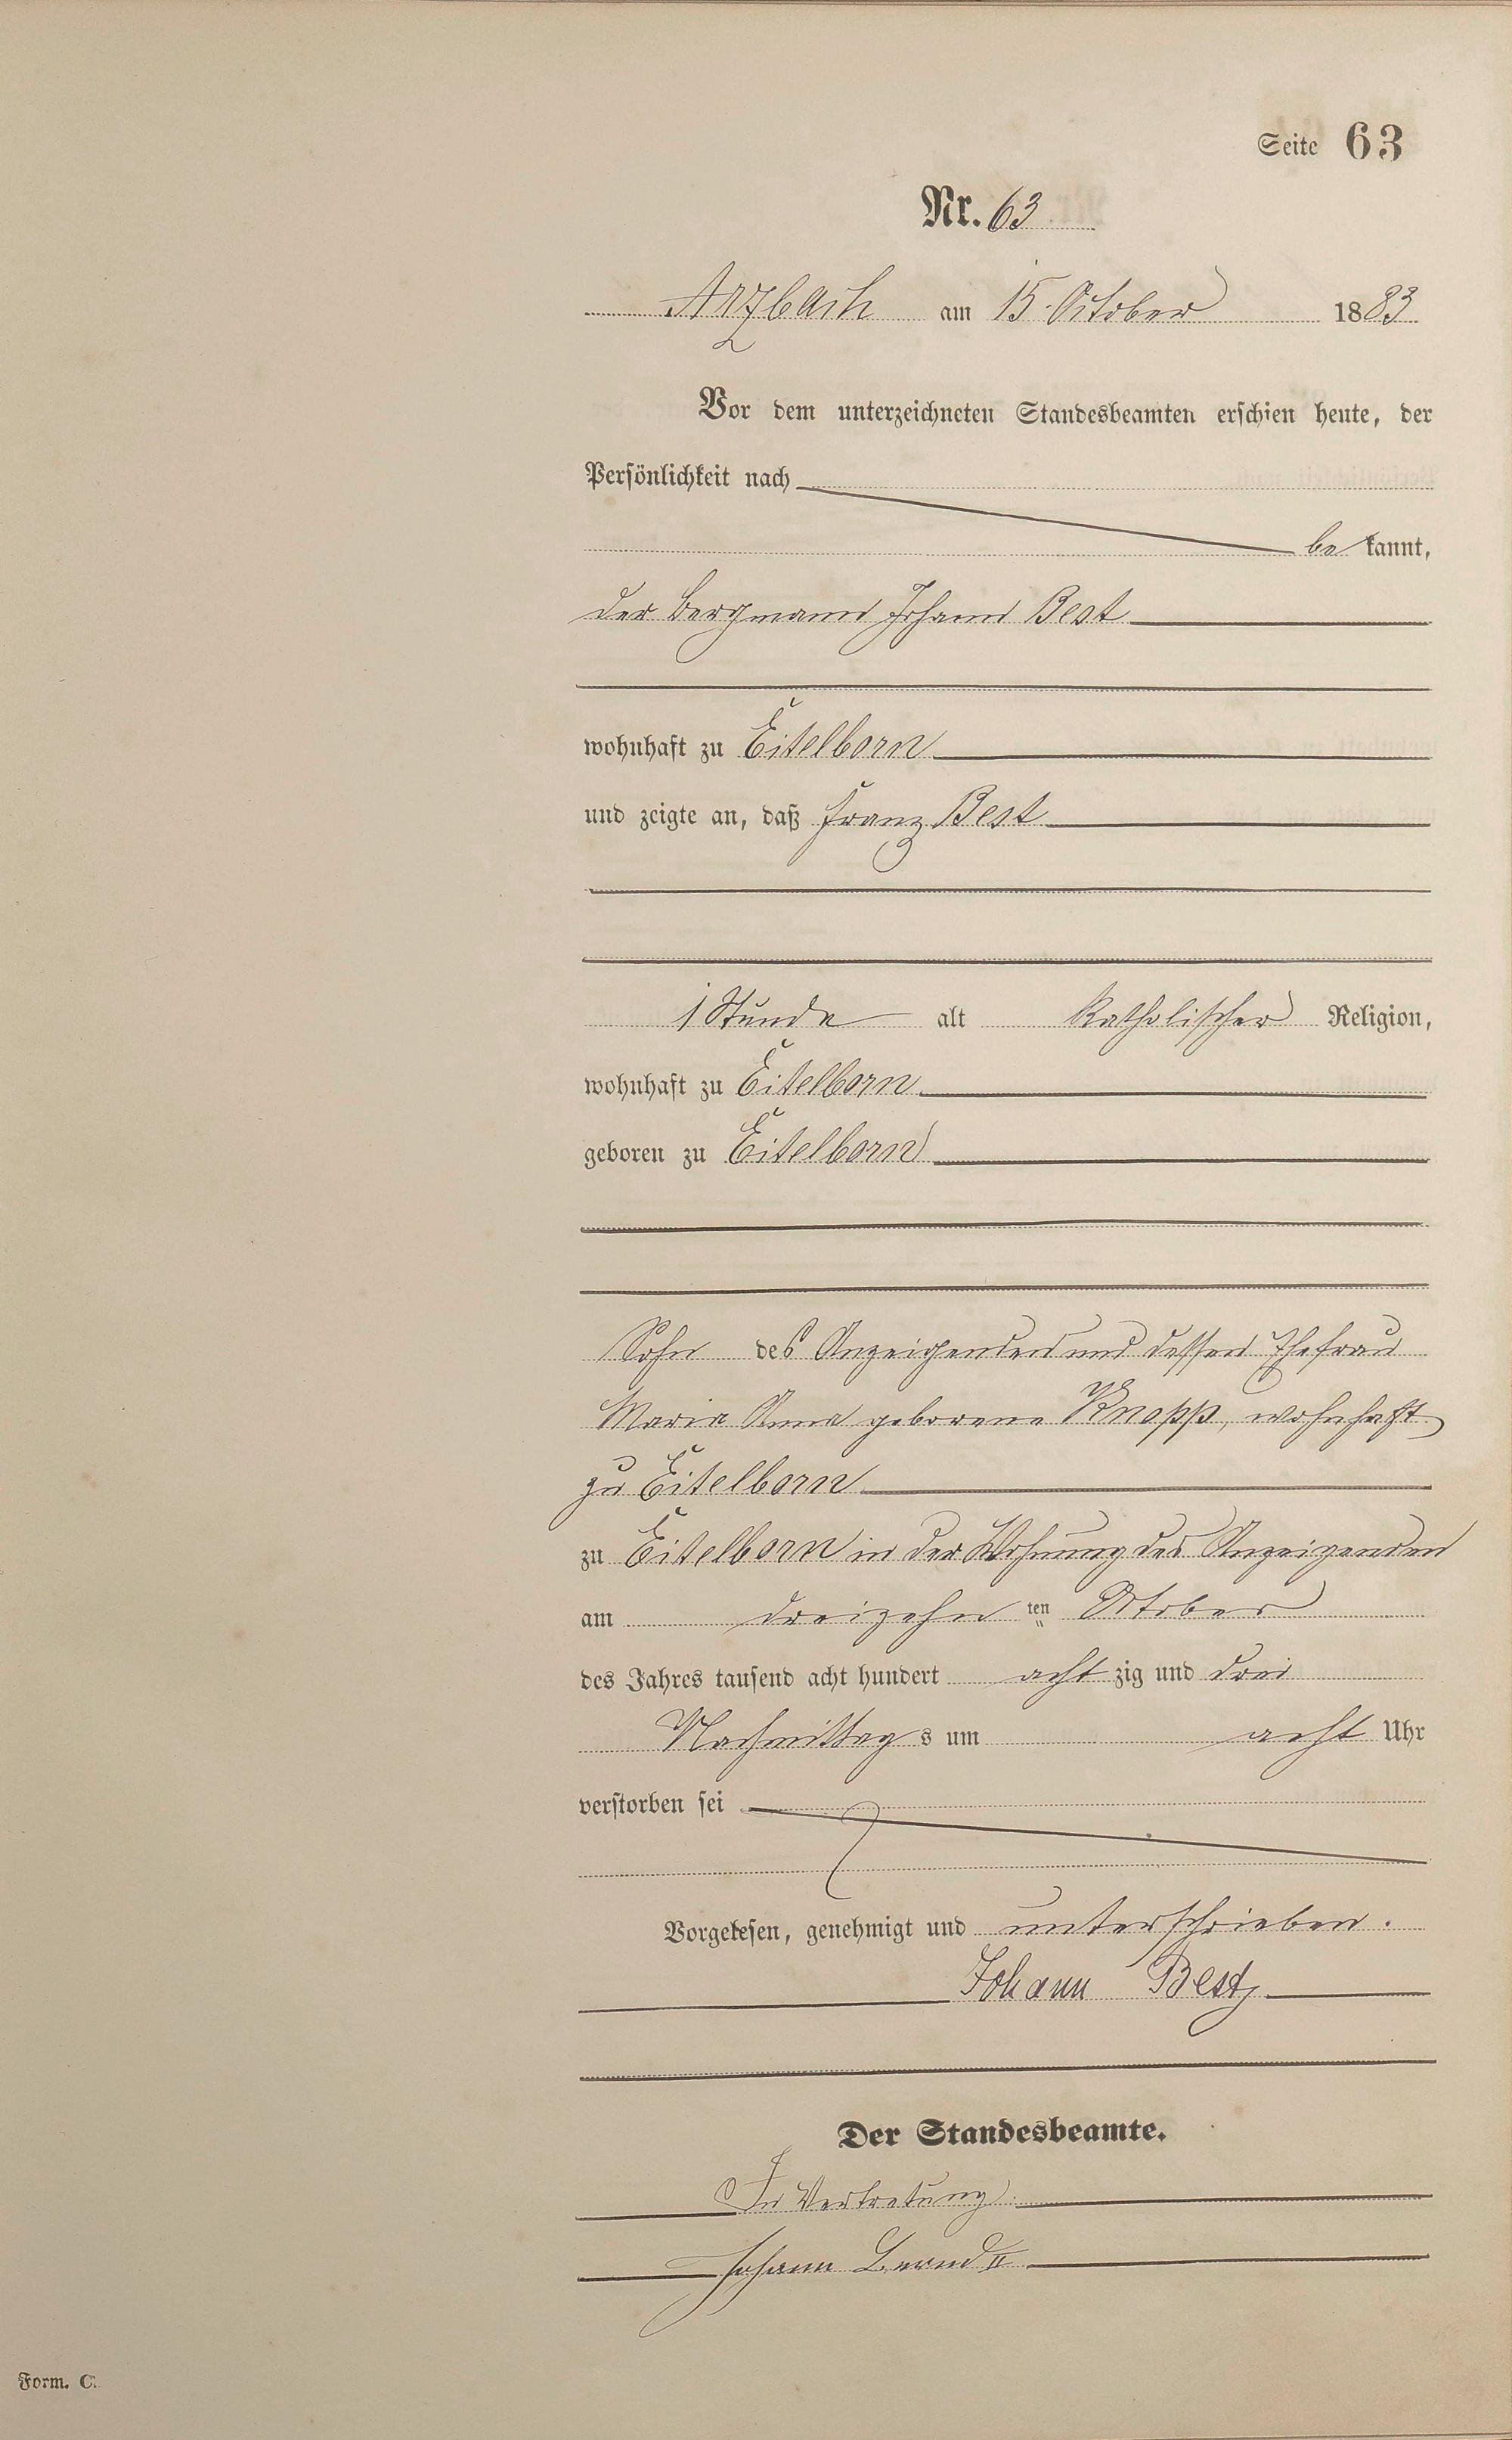 Seite 63
Nr. 63
Arzbach am 15. October 1883
Vor dem unterzeichneten Standesbeamten erschien heute, der
Persönlichkeit nach
be kannt,
der Bergmann Johann Best
wohnhaft zu Eitelborn
und zeigte an, daß Franz Best
1 Stunde alt katholischer Religion,
wohnhaft zu Eitelborn
geboren zu Eitelborn
Sohn des Anzeigenden und dessen Ehefrau
Maria Anna geborene Knopp, wohnhaft
zu Eitelborn
zu Eitelborn in der Wohnung des Anzeigenden
am dreizehn ten Oktober
des Jahres tausend acht hundert acht zig und drei
Nachmittag s um acht Uhr
verstorben sei
Vorgelesen, genehmigt und unterschrieben.
Johann Best
Der Standesbeamte.
In Vertretung
Johann II
Form. C.